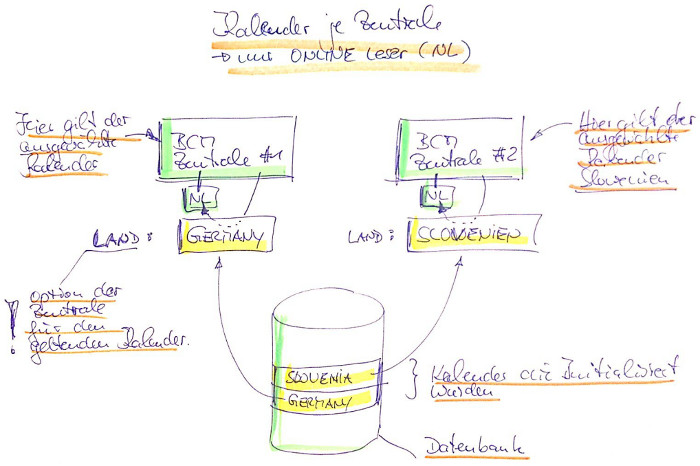 Kalender je Zentrale
→ nur ONLINE Leser (NL)
Hier gilt der
ausgewählte
Kalender
BCM
Zentrale #1
NL
LAND:
GERMANY
BCM
Zentrale #2
NL
LAND:
SLOWENIEN
Hier gilt der
Kalender
Slowenien
! Option der
Zentrale
für den
geltenden Kalender.
SLOVENIA
GERMANY
Kalender die Initialisiert
wurden
Datenbank